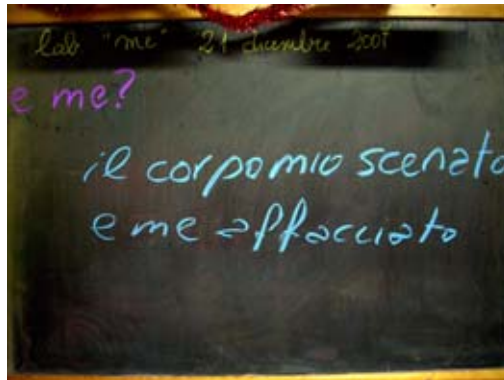 lab "me" 21 dicembre 2007
e me?
il corpo mio scenato
e me affacciato